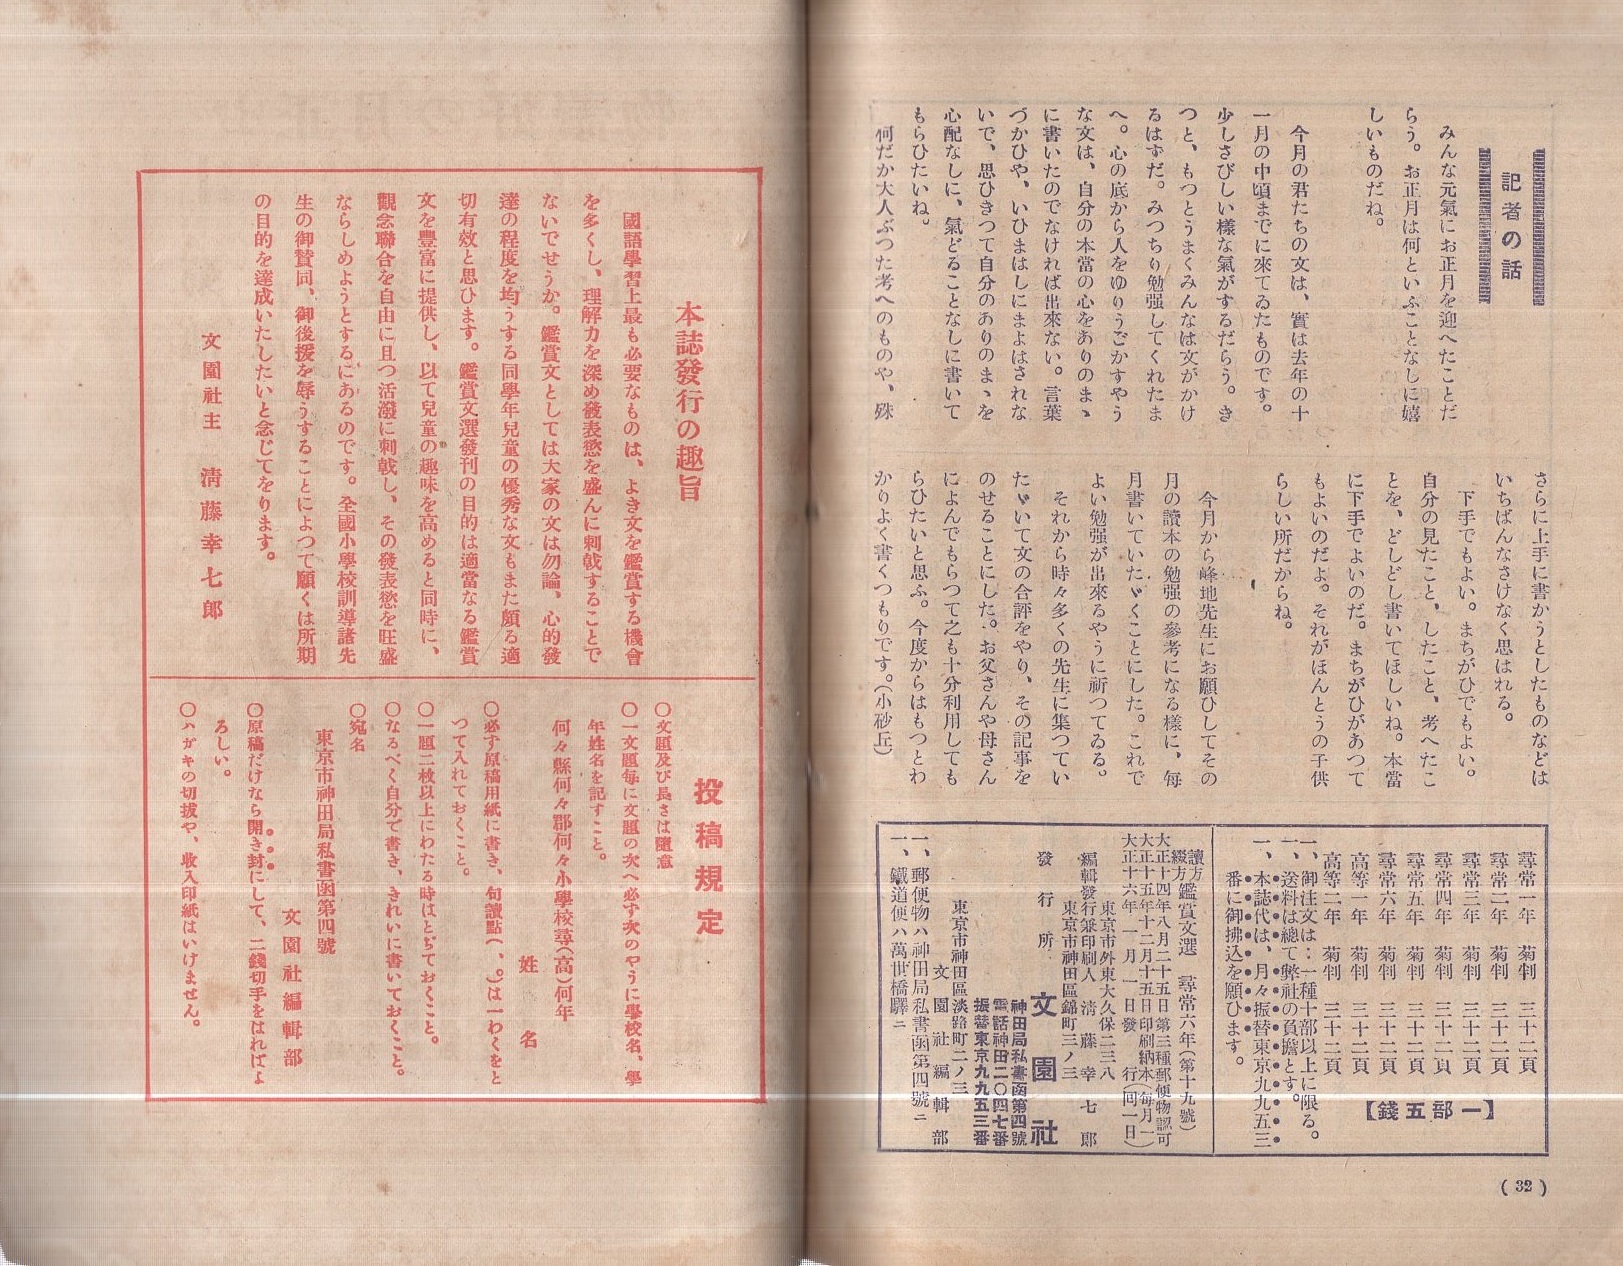 記者の話
みんな元氣にお正月を迎へたことだ
らう。お正月は何といふことなしに嬉
しいものだね。
今月の君たちの文は、實は去年の十
一月の中頃までに來てゐたものです。
少しさびしい樣な氣がするだらう。き
つと、もつとうまくみんなは文がかけ
るはずだ。みつちり勉强してくれたま
へ。心の底から人をゆりうごかすやう
な文は、自分の本當の心をありのまゝ
に書いたのでなければ出來ない。言葉
づかひや、いひまはしにまよはされな
いで、思ひきつて自分のありのまゝを
心配なしに、氣どることなしに書いて
もらひたいね。
何だか大人ぶつた考へのものや、殊
さらに上手に書かうとしたものなどは
いちばんなさけなく思はれる。
下手でもよい。まちがひでもよい。
自分の見たこと、したこと、考へたこ
とを、どしどし書いてほしいね。本當
に下手でよいのだ。まちがひがあつて
もよいのだよ。それがほんとうの子供
らしい所だからね。
今月から峰地先生にお願ひしてその
月の讀本の勉强の參考になる樣に、每
月書いていたゞくことにした。これで
よい勉强が出來るやうに祈つてゐる。
それから時々多くの先生に集つてい
たゞいて文の合評をやり、その記事を
のせることにした。お父さんや母さん
によんでもらつて之も十分利用しても
らひたいと思ふ。今度からはもつとわ
かりよく書くつもりです。(小砂丘)
尋常一年　菊判　三十二頁
尋常二年　菊判　三十二頁
尋常三年　菊判　三十二頁
尋常四年　菊判　三十二頁
尋常五年　菊判　三十二頁
尋常六年　菊判　三十二頁
高等一年　菊判　三十二頁
高等二年　菊判　三十二頁
【一部五錢】
一、御注文は：一種十部以上に限る。
一、送料は總て弊社の負擔とす。
一、本誌代は、月々振替東京九九五三
番に御拂込を願ひます。
讀方綴方鑑賞文選　尋常六年(第十九號)
大正十四年八月二十五日第三種郵便物認可
大正十五年十二月十五日印刷納本(每月一)
大正十六年一月一日發行(囘一日)
東京市外東大久保二三八
編輯發行兼印刷人　淸藤幸七郞
東京市神田區錦町三ノ三
發行所　文園社
神田局私書函第四號
電話神田二〇四七番
振替東京九九五三番
東京市神田區淡路町二ノ三
文園社編輯部
一、郵便物ハ神田局私書函第四號ニ
一、鐵道便ハ萬世橋驛ニ
(32)
本誌發行の趣旨
國語學習上最も必要なものは、よき文を鑑賞する機會
を多くし、理解力を深め發表慾を盛んに刺戟することで
ないでせうか。鑑賞文としては大家の文は勿論、心的發
達の程度を均うする同學年兒童の優秀な文もまた頗る適
切有效と思ひます。鑑賞文選發刊の目的は適當なる鑑賞
文を豐富に提供し、以て兒童の趣味を高めると同時に、
觀念聯合を自由に且つ活潑に刺戟し、その發表慾を旺盛
ならしめようとするにあるのです。全國小學校訓導諸先
生の御贊同、御後援を辱うすることによつて願くは所期
の目的を達成いたしたいと念じてをります。
文園社主　淸藤幸七郞
投稿規定
〇文題及び長さは隨意
〇一文題每に文題の次へ必ず次のやうに學校名、學
年姓名を記すこと。
何々縣何々郡何々小學校尋(高)何年
姓　名
〇必ず原稿用紙に書き、句讀點(、。)は一わくをと
つて入れておくこと。
〇一題二枚以上にわたる時はとぢておくこと。
〇なるべく自分で書き、きれいに書いておくこと。
〇宛名
東京市神田局私書函第四號
文園社編輯部
〇原稿だけなら開き封にして、二錢切手をはればよ
ろしい。
〇ハガキの切拔や、收入印紙はいけません。